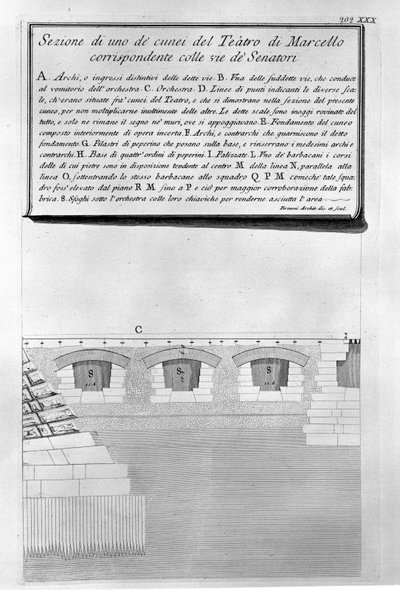 202 XXX
Sezione di uno de' cunei del Teatro di Marcello
corrispondente colle vie de' Senatori
A. Archi, o ingressi distintivi delle dette vie. B. Una delle suddette vie, che conduce
al vomitorio dell'orchestra. C. Orchestra. D. Linee di punti indicanti le diverse sca-
le, ch'erano situate fra' cunei del Teatro, e che si dimostrano nella sezione del presente
cuneo, per non moltiplicarne inutilmente delle altre. Le dette scale sono inoggi rovinate del
tutto, e solo ne rimane il segno ne' muri, ove si appoggiavano. E. Fondamento del cuneo
composto interiormente di opera incerta. F. Archi, e contrarchi che guarniscono il detto
fondamento. G. Pilastri di peperino che posano sulla base, e rinserrano i medesimi archi e
contrarchi. H. Base di quattr'ordini di peperini. I. Palizzate. L. Uno de' barbacani i corsi
delle di cui pietre sono in disposizione tendente al centro M della linea N, parallela alla
linea O, sottentrando lo stesso barbacane allo squadro Q P M comeche tale squa-
dro fosse elevato dal piano R M sino a P e ciò per maggior corroborazione della fab-
brica. S. Sfoghi sotto l'orchestra colle loro chiaviche per renderne asciutta l'area
Piranesi Archit. dis. et scul.
C
S S S